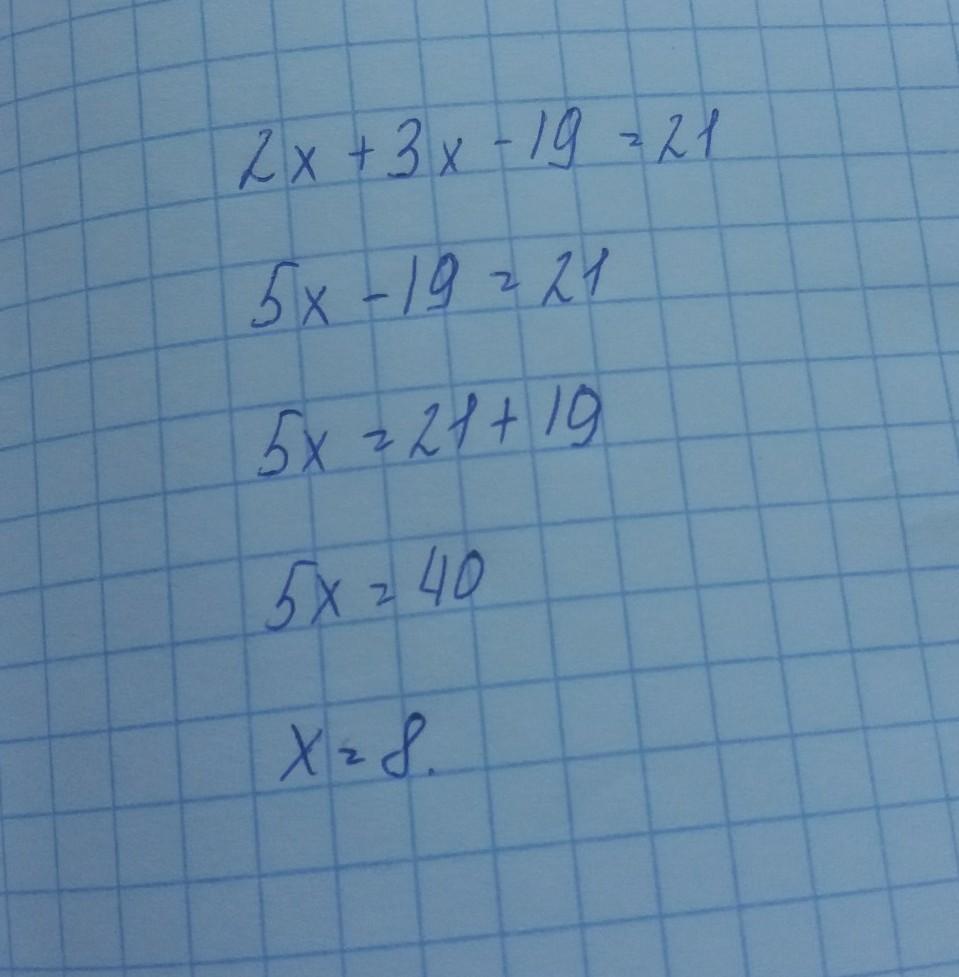 2x + 3x - 19 = 21
5x - 19 = 21
5x = 21 + 19
5x = 40
x = 8.